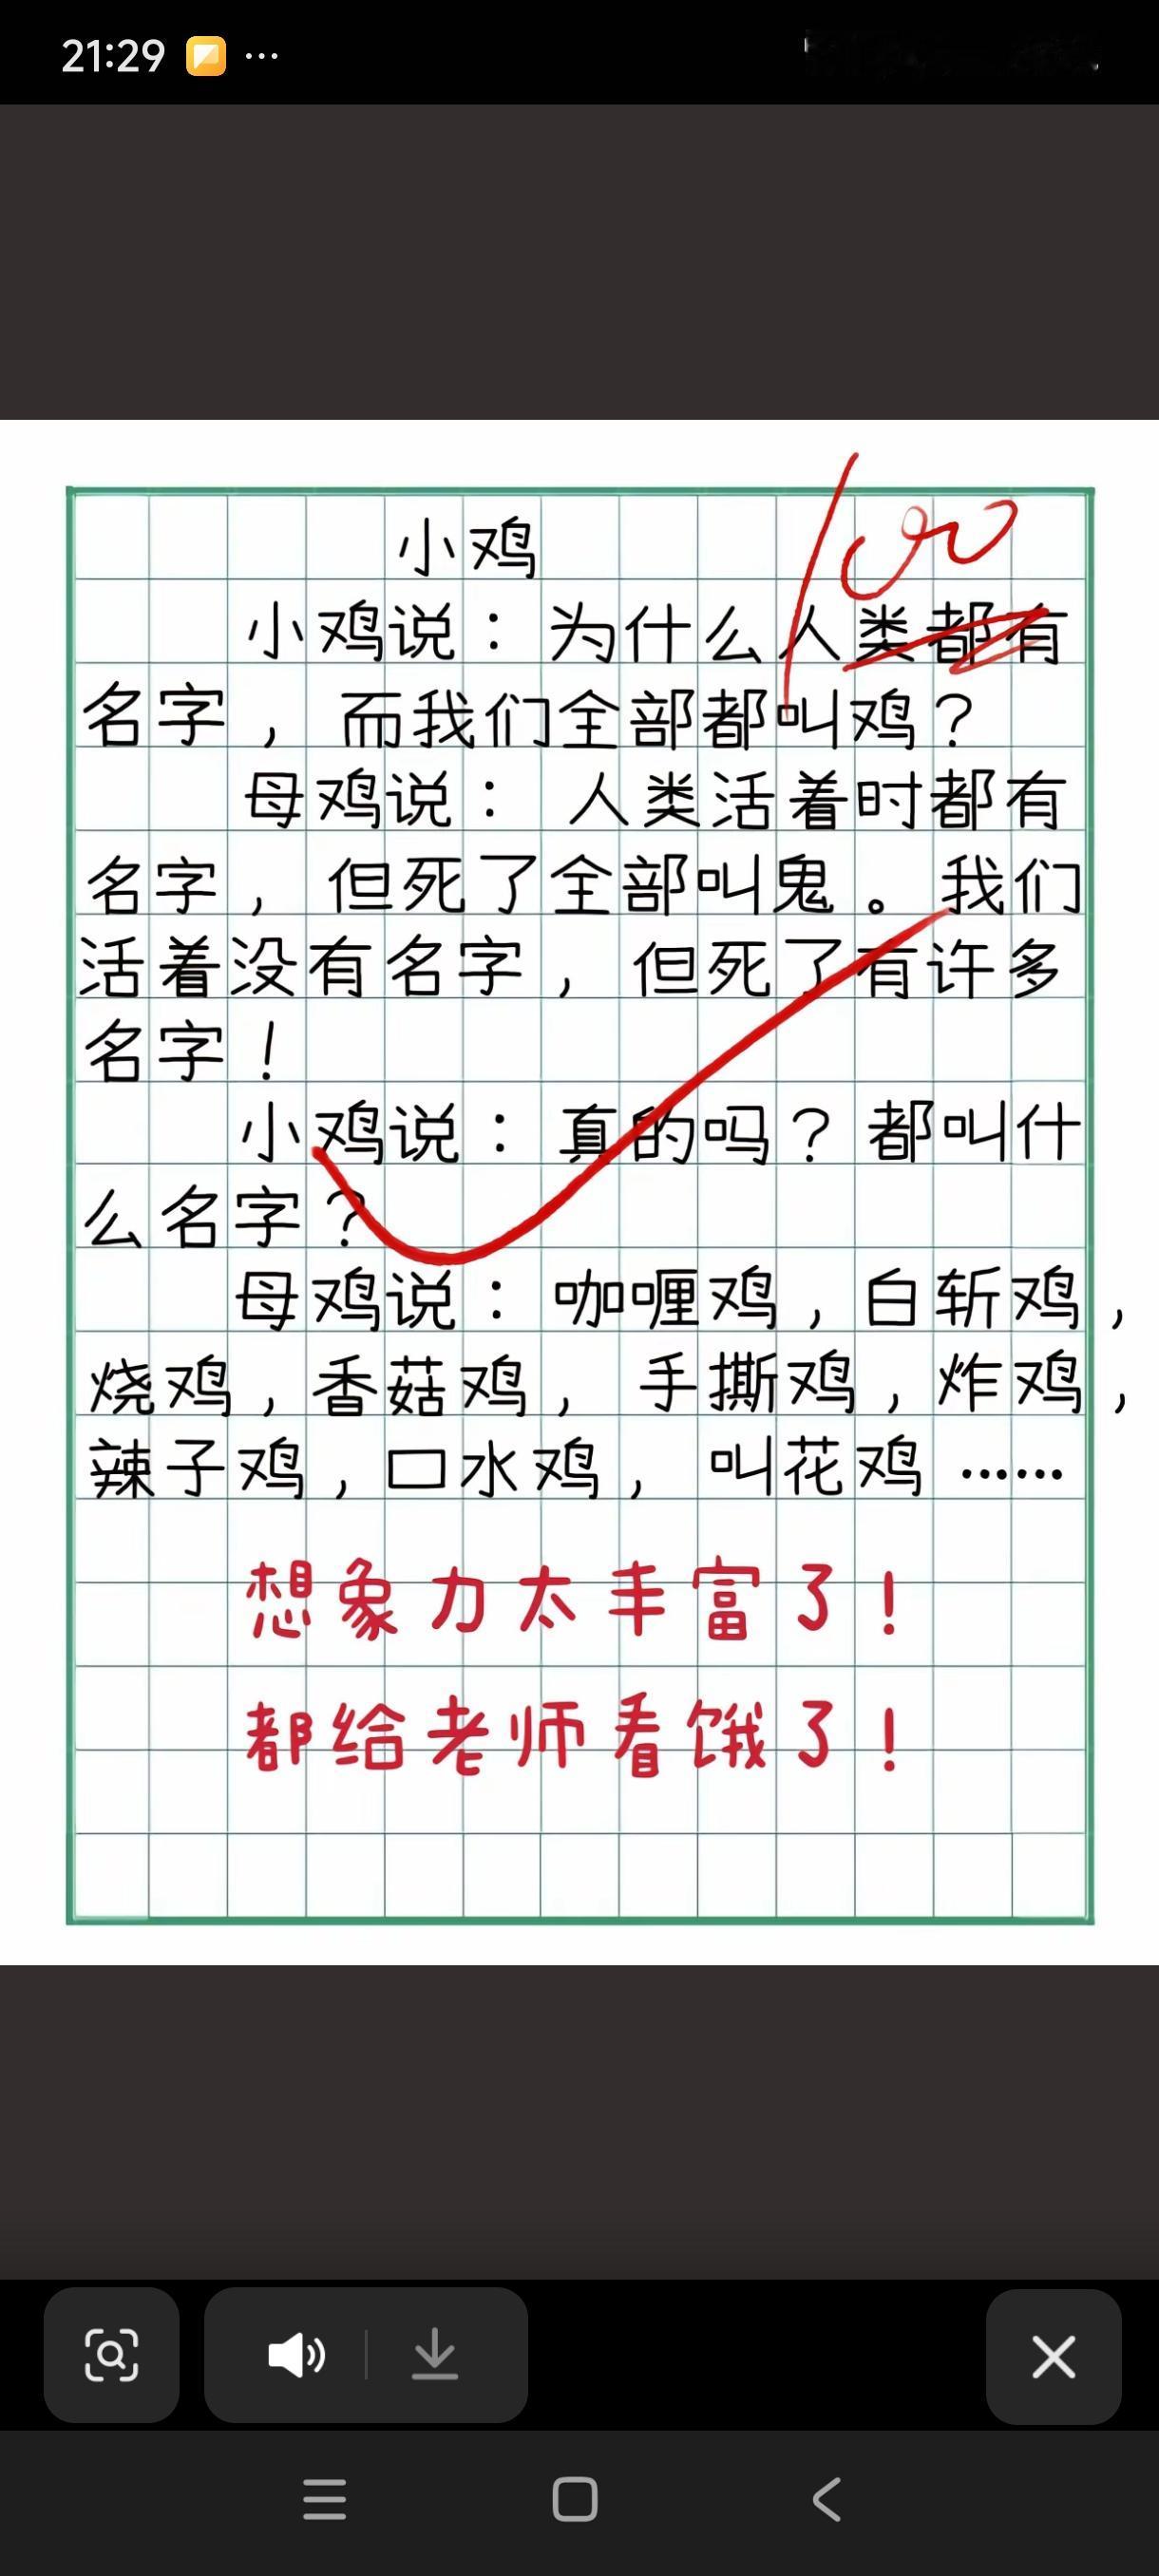 21:29
100
小鸡
小鸡说：为什么人类都有
名字，而我们全部都叫鸡？
母鸡说：人类活着时都有
名字，但死了全部叫鬼。我们
活着没有名字，但死了有许多
名字！
小鸡说：真的吗？都叫什
么名字？
母鸡说：咖喱鸡，白斩鸡，
烧鸡，香菇鸡，手撕鸡，炸鸡，
辣子鸡，口水鸡，叫花鸡……
想象力太丰富了！
都给老师看饿了！